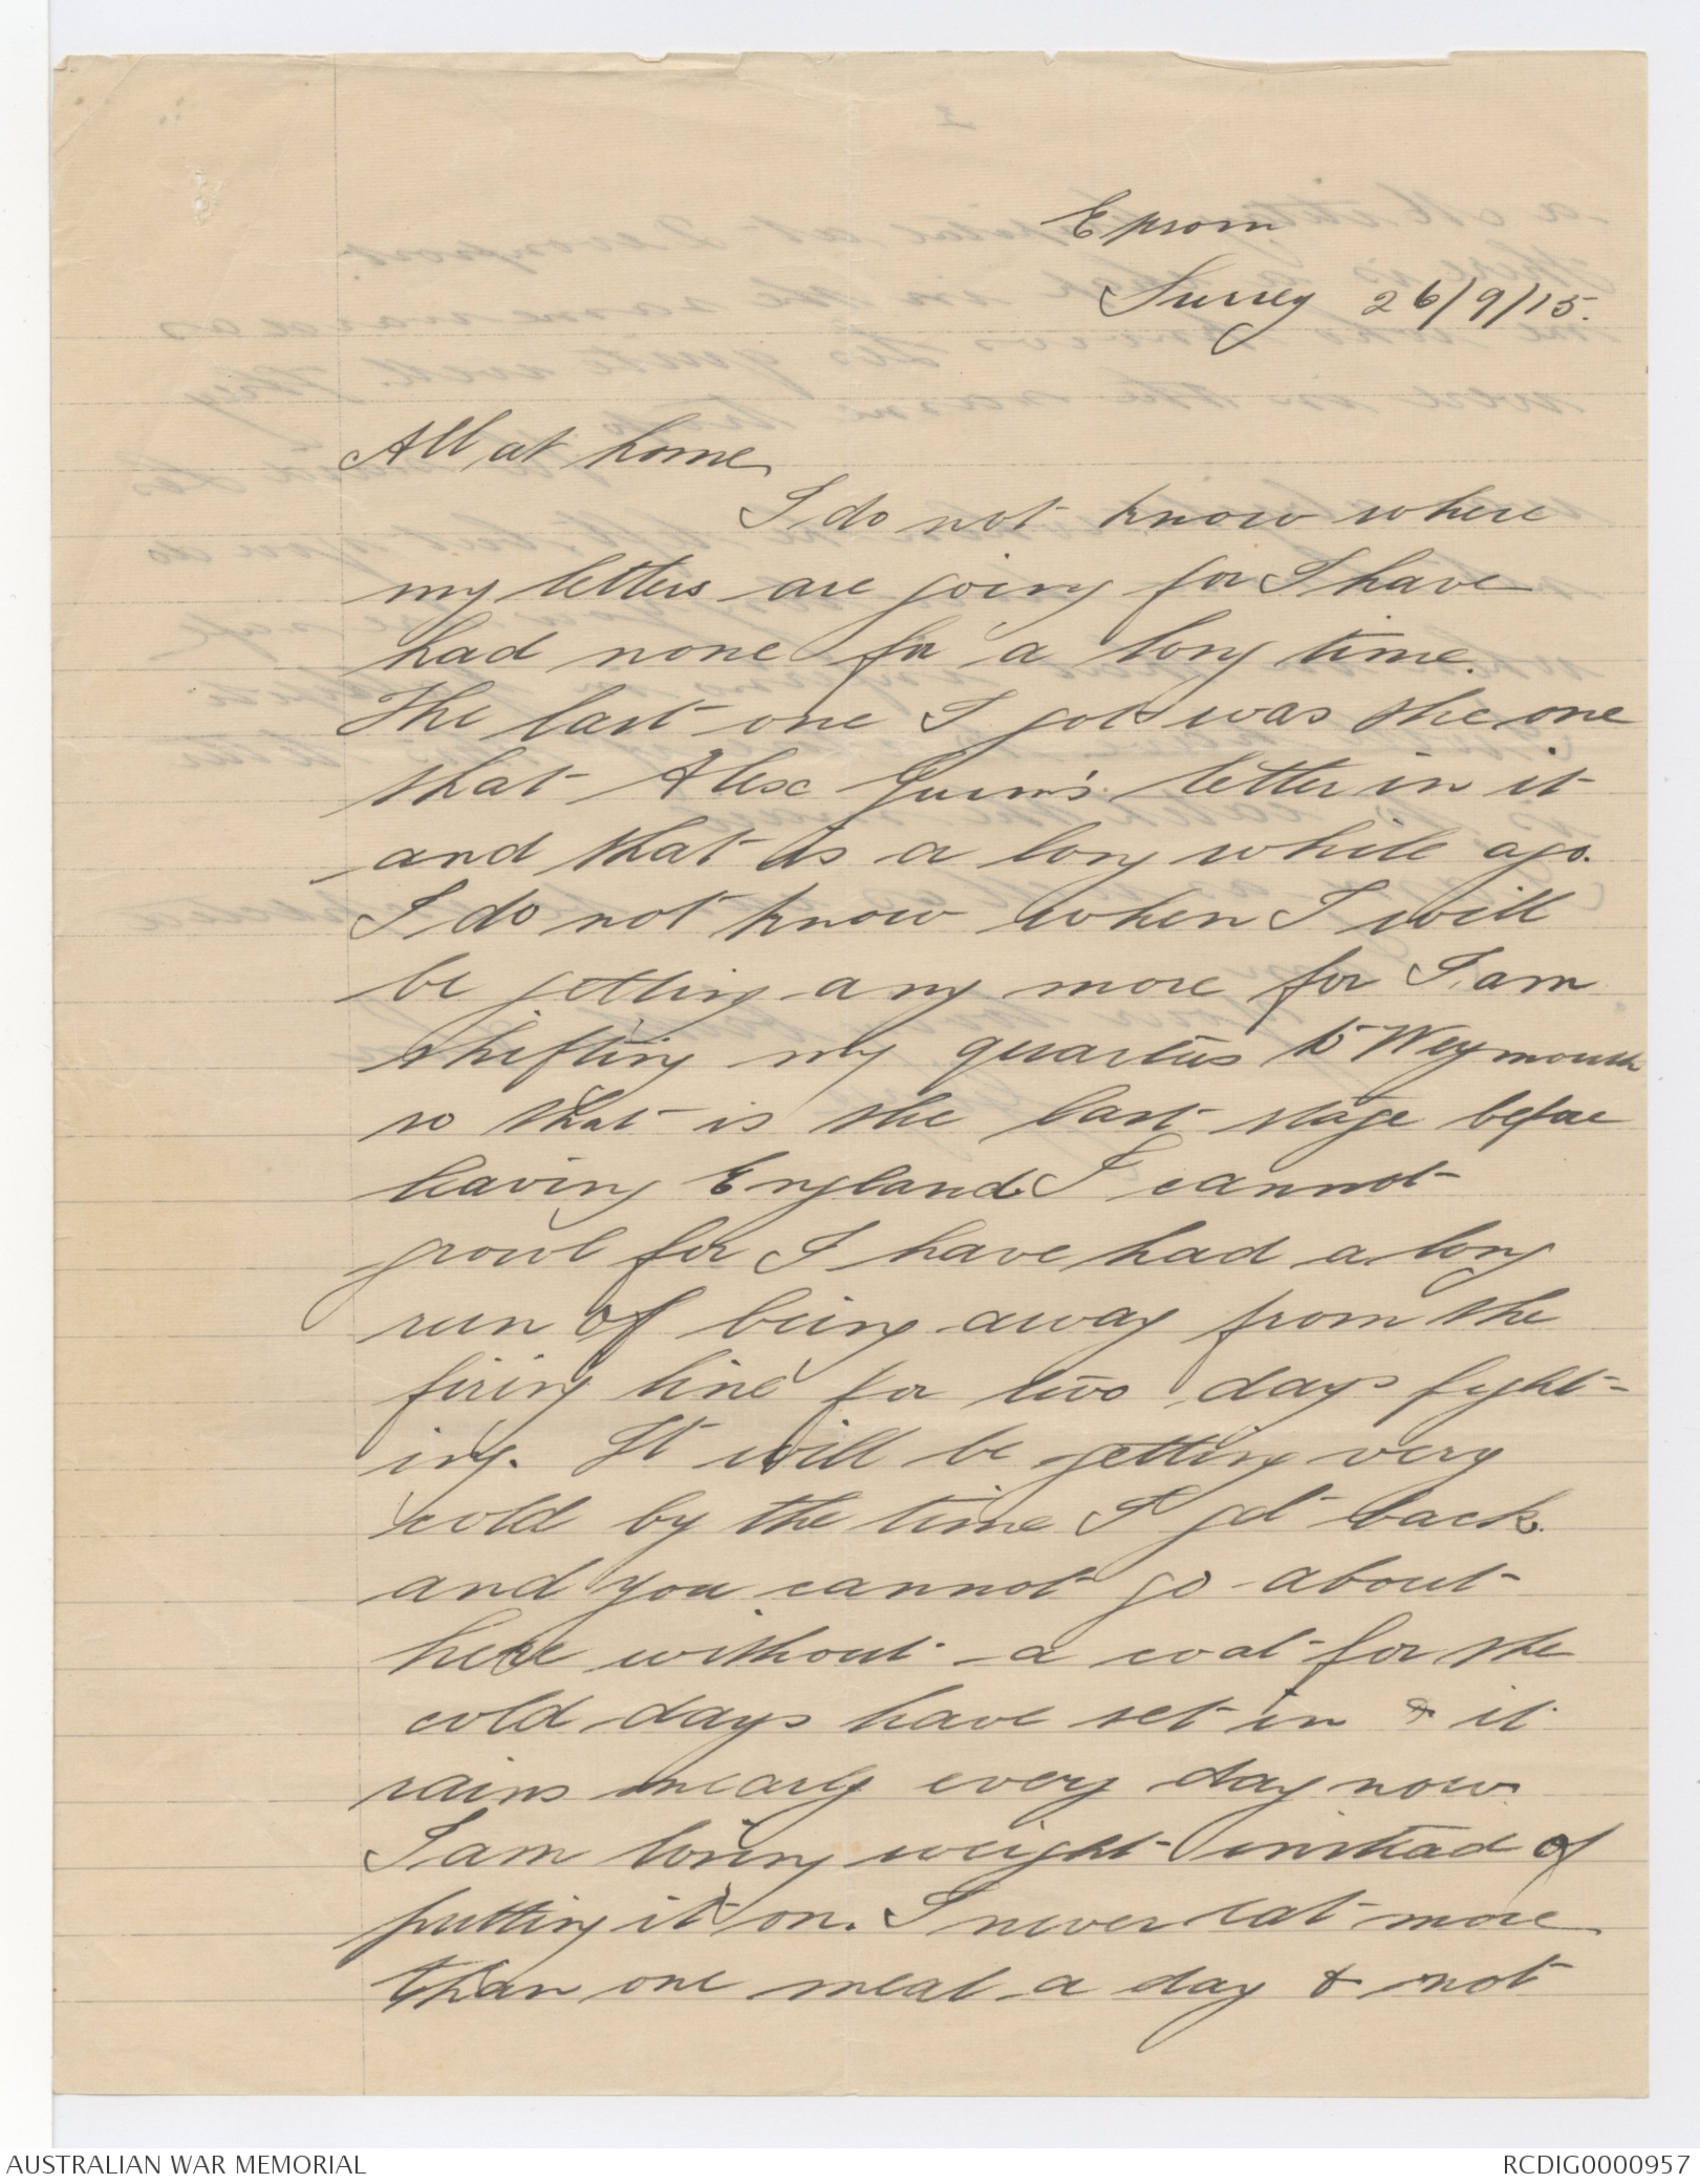 Epsom
Surrey 26/9/15.
All at home
I do not know where
my letters are going for I have
had none for a long time.
The last one I got was the one
that Alex letter in it
and that is a long while ago.
I do not know when I will
be getting any more for I am
shifting my quarters to Weymouth
so that is the last stage before
leaving England. I cannot
growl for I have had a long
run of being away from the
firing line for two days fight-
ing. It will be getting very
cold by the time I get back.
and you cannot go about
here without a coat for the
cold days have set in & it
rains nearly every day now.
I am losing weight instead of
putting it on. I never eat more
than one meal a day & not
AUSTRALIAN WAR MEMORIAL
RCDIG0000957